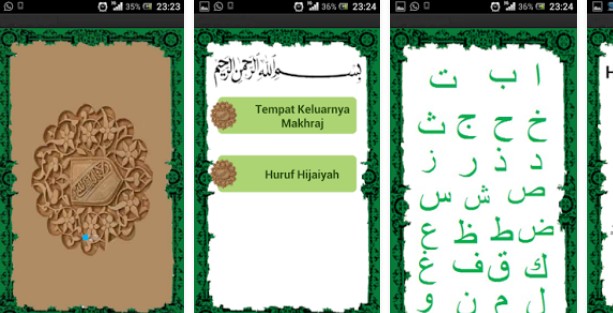 35% 23:23
36% 23:24
بسم الله الرحمن الرحيم
Tempat Keluarnya
Makhraj
Huruf Hijaiyah
36% 23:24
ا ب ت
خ ح ج ث
د ذ ر ز
ص ش س
ض ط ظ ع
ك ق ف غ
ل م ن و
H